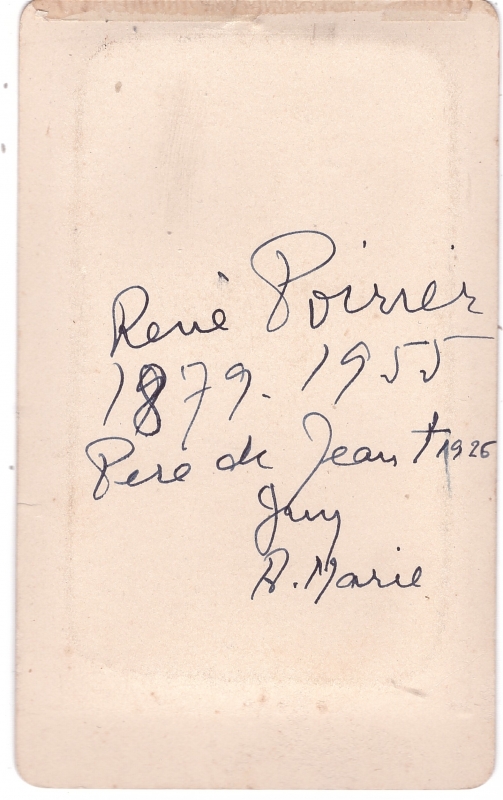 René Poirrier
1879. 1955
Pere de Jean † 1926
Guy
A. Marie